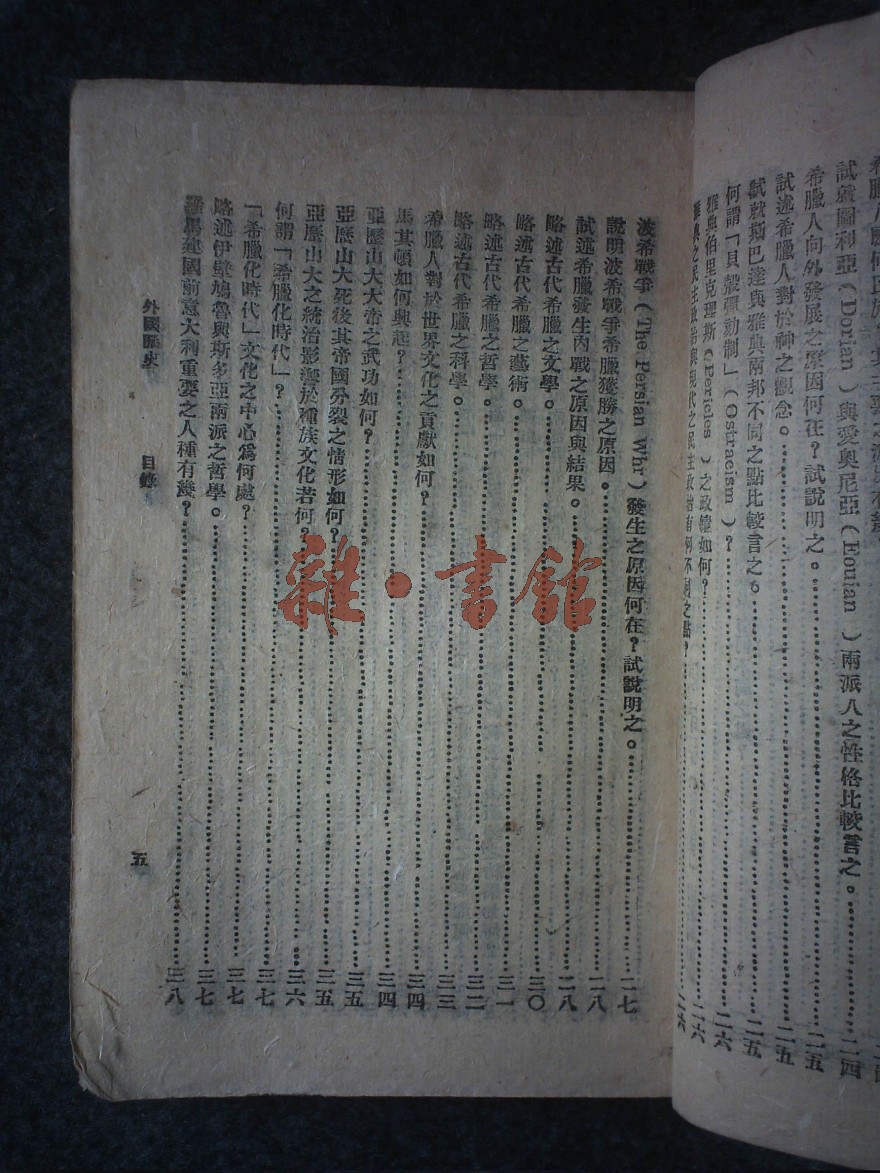 試就圖利亞(Dorian)與愛奧尼亞(Eouian)兩派人之性格比較言之。二四
希臘人向外發展之原因何在?試說明之。二五
試述希臘人對於神之觀念。二五
試就斯巴達與雅典兩邦不同之點比較言之。二五
何謂「貝殼彈劾制」(Ostracism)?二六
雅典伯里克理斯(Pericles)之政績如何?二六
雅典之民主政治與現代之民主政治有何不同之點?二六
波希戰爭(The Persian Whr)發生之原因何在?試說明之。二七
說明波希戰爭希臘獲勝之原因。二八
試述希臘發生內戰之原因與結果。二八
略述古代希臘之文學。三〇
略述古代希臘之藝術。三一
略述古代希臘之哲學。三二
略述古代希臘之科學。三三
希臘人對於世界文化之貢獻如何?三四
馬其頓如何興起?三四
亞歷山大大帝之武功如何?三五
亞歷山大死後其帝國分裂之情形如何?三五
亞歷山大之統治影響於種族文化若何?三六
何謂「希臘化時代」?三七
「希臘化時代」文化之中心爲何處?三七
略述伊壁鳩魯與斯多亞兩派之哲學。三七
羅馬建國前意大利重要之人種有幾?三八
外國歷史 目錄 五
雜·書館